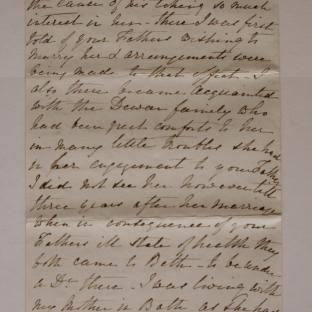 the cause of his taking so much
interest in her - there I was first
told of your Fathers wishing to
marry her & arrangements were
being made to that effect - I
also there became acquainted
with the Dewar family who
had been great comforts to her
in many little troubles she had
in her engagement to your Father
I did not see her however till
three years after her marriage
when in consequence of your
Fathers ill state of health they
both came to Bath - to be under
a Dr there - I was living with
my Mother in Bath as she was